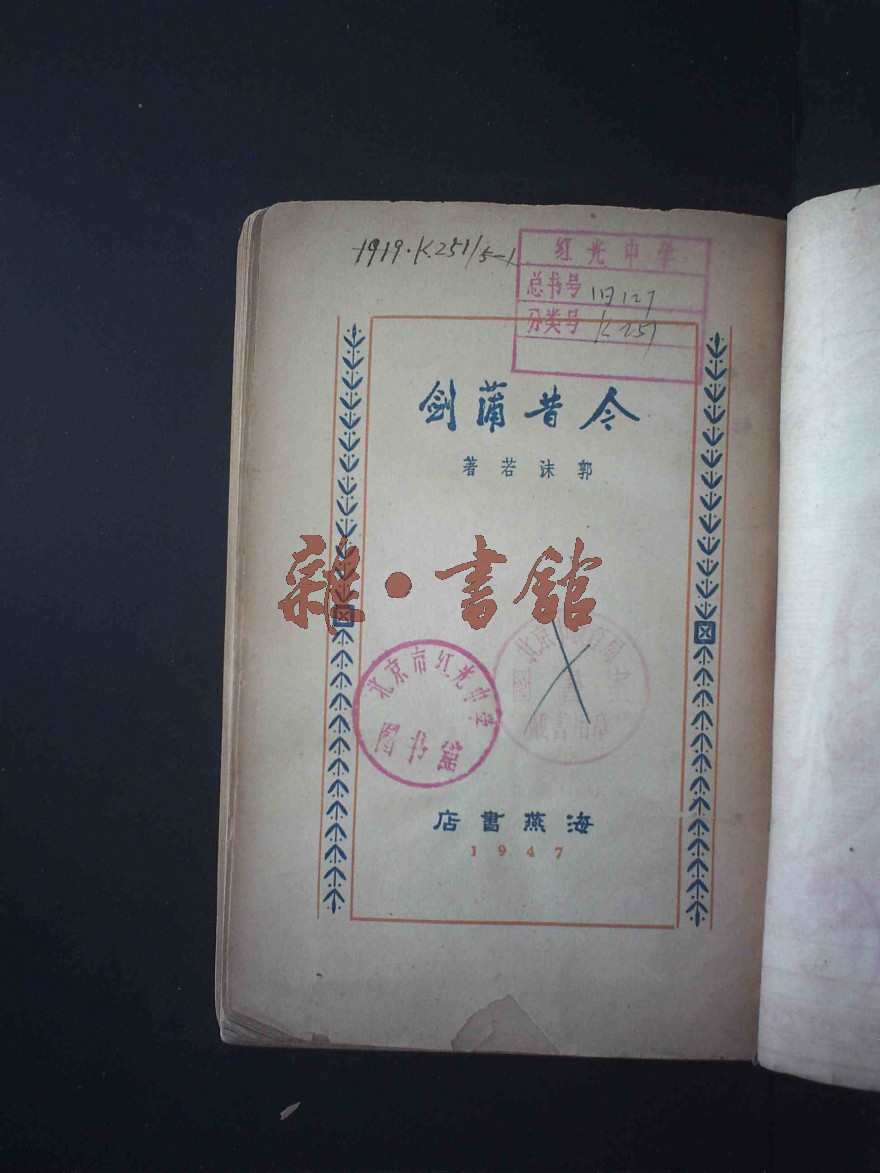 1919·K251/5-1
红光中学
总书号 旧127
分类号 K251
今昔蒲剑
郭沫若著
雜·書館
北京市红光中学
图书馆
海燕書店
1947